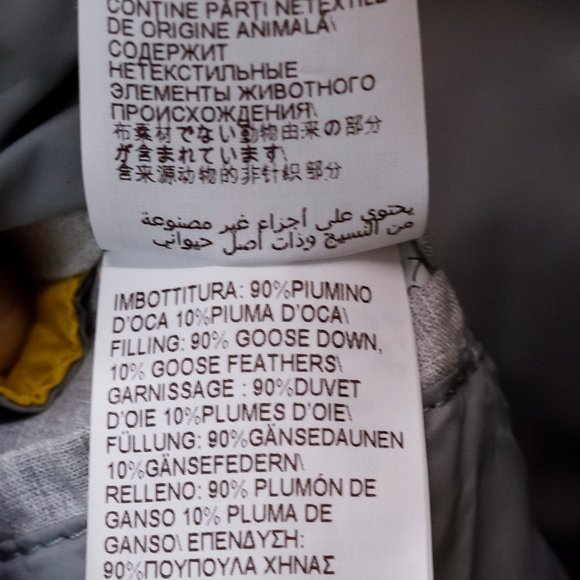 CONȚINE PĂRȚI NETEXTILE
DE ORIGINE ANIMALĂ\
СОДЕРЖИТ
НЕТЕКСТИЛЬНЫЕ
ЭЛЕМЕНТЫ ЖИВОТНОГО
ПРОИСХОЖДЕНИЯ\
布素材でない動物由来の部分
が含まれています\
含来源动物的非针织部分
يحتوي على أجزاء غير مصنوعة
من النسيج وذات أصل حيواني
IMBOTTITURA: 90%PIUMINO
D'OCA 10%PIUMA D'OCA\
FILLING: 90% GOOSE DOWN,
10% GOOSE FEATHERS\
GARNISSAGE : 90%DUVET
D'OIE 10%PLUMES D'OIE\
FÜLLUNG: 90%GÄNSEDAUNEN
10%GÄNSEFEDERN\
RELLENO: 90% PLUMÓN DE
GANSO 10% PLUMA DE
GANSO\ ΕΠΕΝΔΥΣΗ:
90%ΠΟΥΠΟΥΛΑ ΧΗΝΑΣ